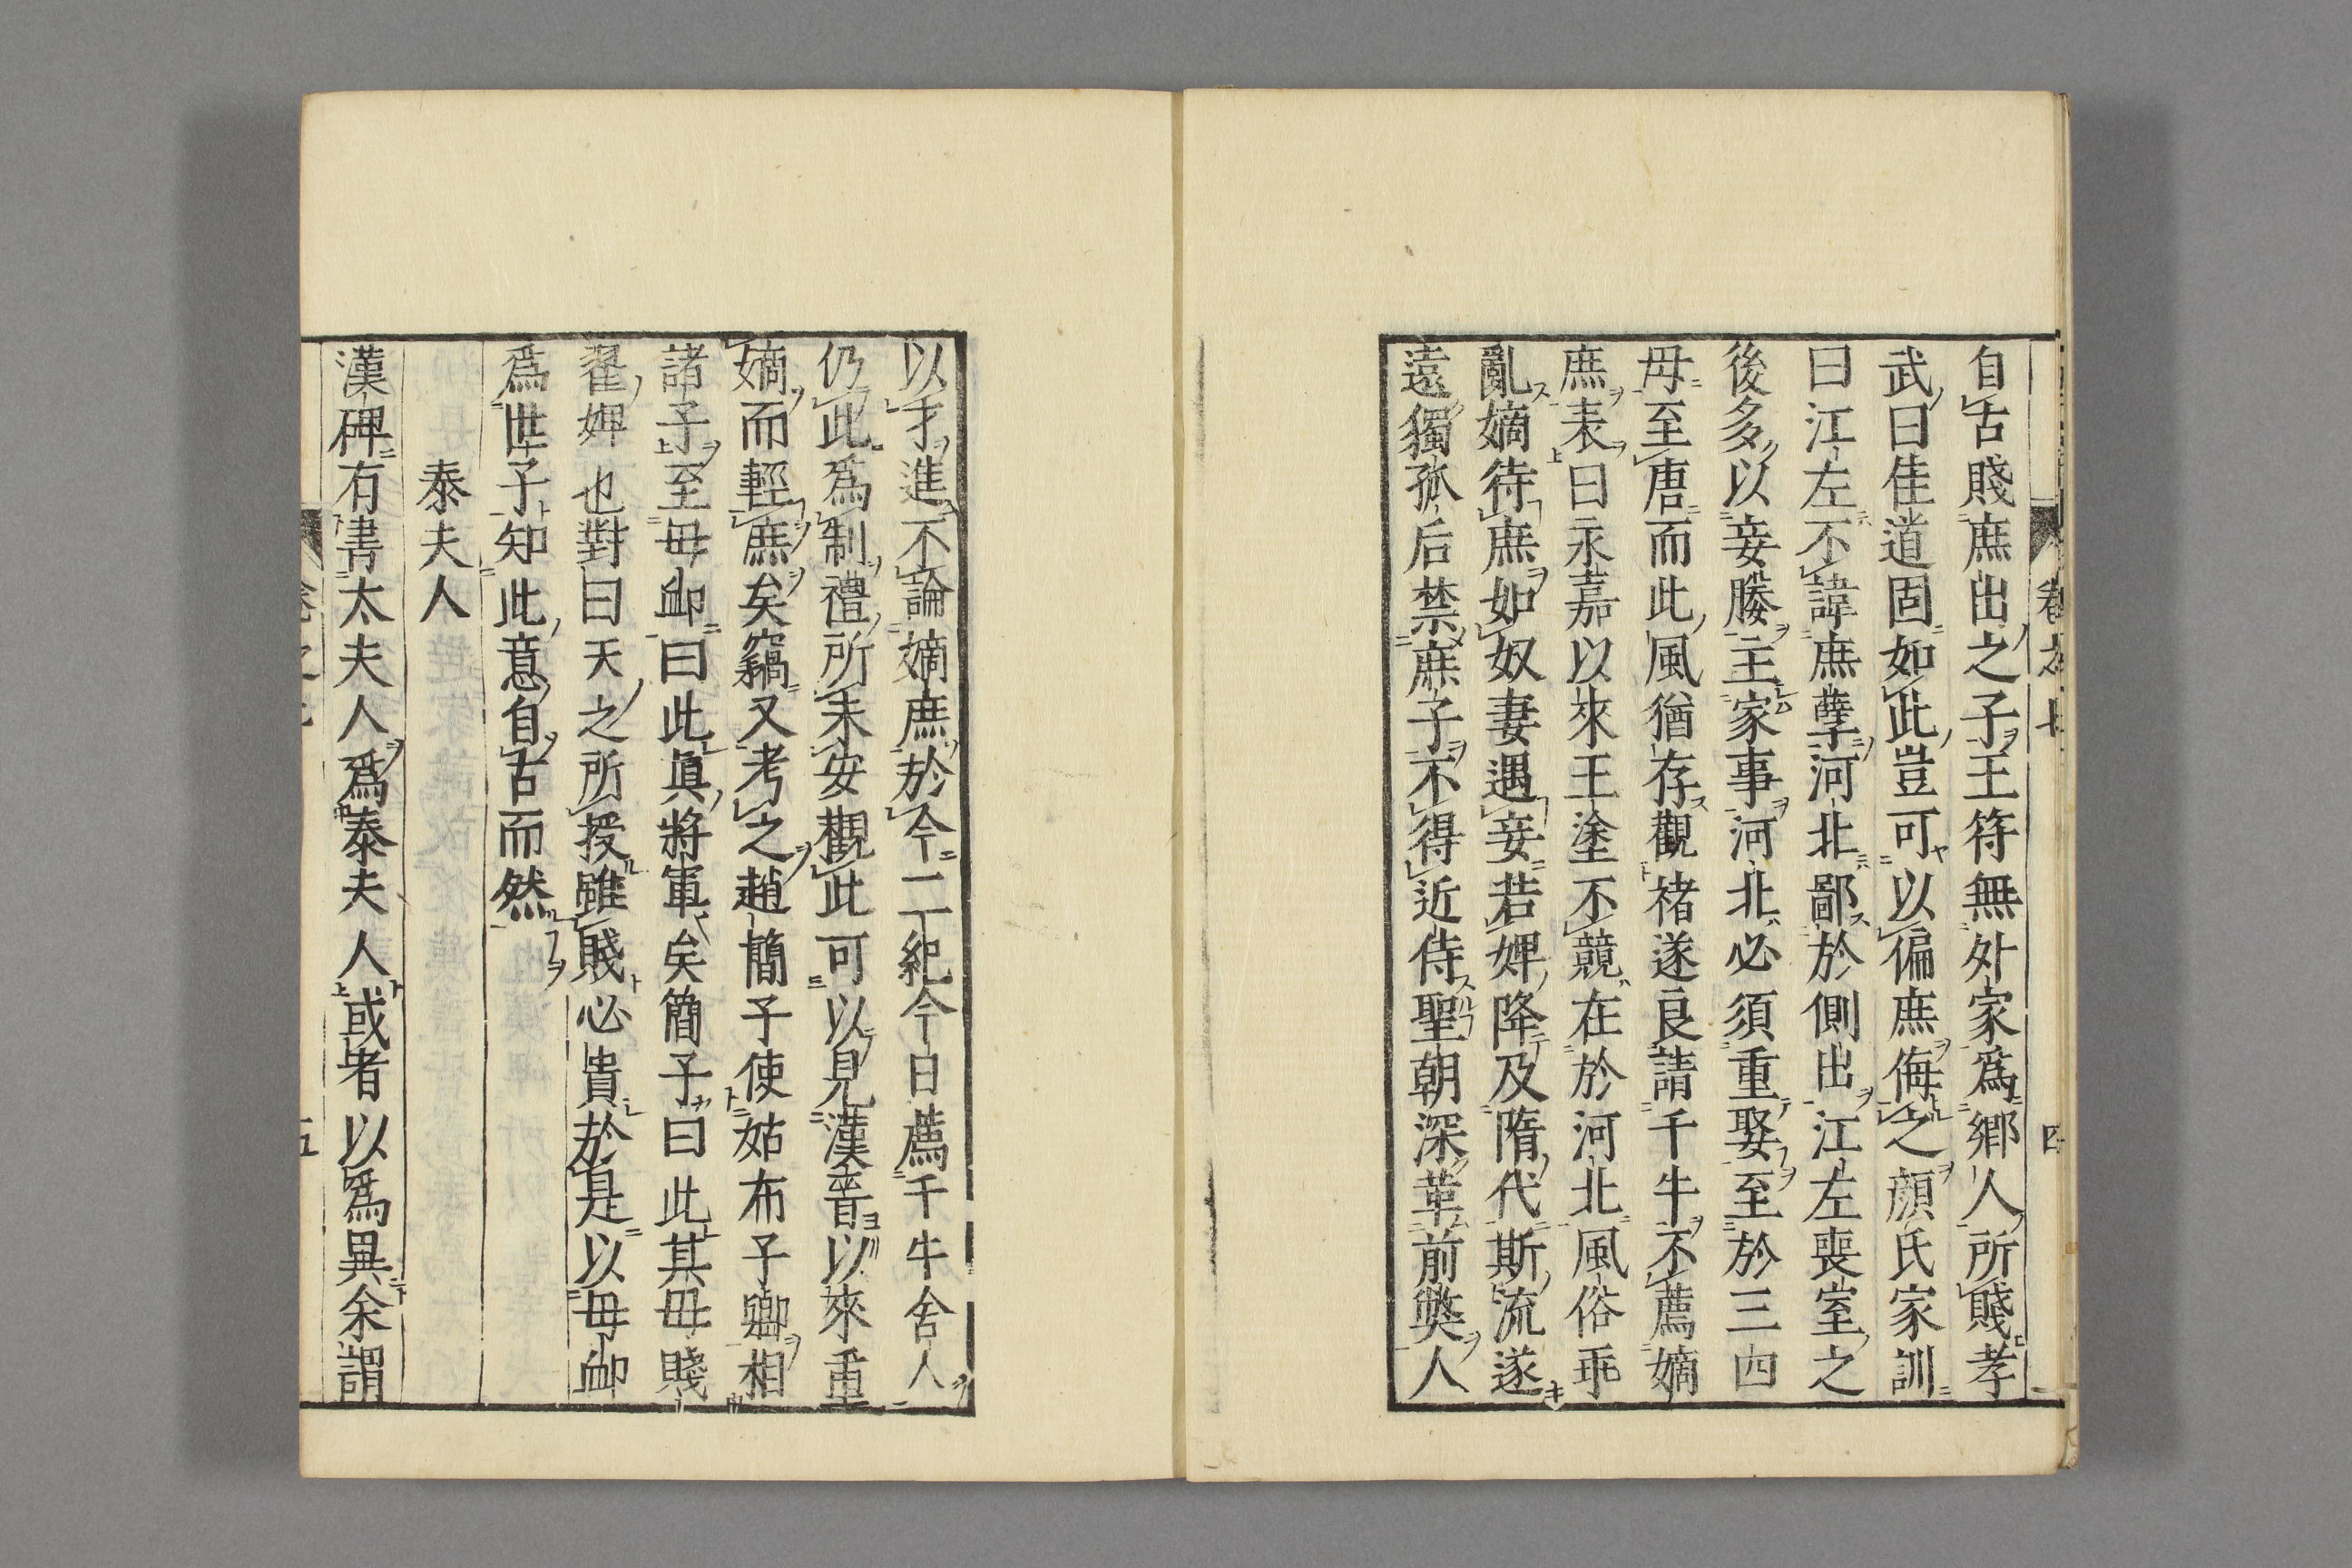 自古賤庶出之子王符無外家爲鄉人所賤孝
武曰佳道固如此豈可以偏庶侮之顏氏家訓
曰江左不諱庶孽河北鄙於側出江左喪室之
後多以妾媵主家事河北必須重娶至於三四
母至唐而此風猶存觀褚遂良請千牛不薦嫡
庶表曰永嘉以來王塗不競在於河北風俗乖
亂嫡待庶如奴妻遇妾若婢降及隋代斯流遂
遠獨孤后禁庶子不得近侍聖朝深革前獘人
以才進不論嫡庶於今二紀今日薦千牛舍人
仍此爲制禮所未安觀此可以見漢晉以來重
嫡而輕庶矣竊又考之趙簡子使姑布子卿相
諸子至毋卹曰此眞將軍矣簡子曰此其母賤
翟婢也對曰天之所授雖賤必貴於是以毋卹
爲世子知此意自古而然
泰夫人
漢碑有書太夫人爲泰夫人或者以爲異余謂